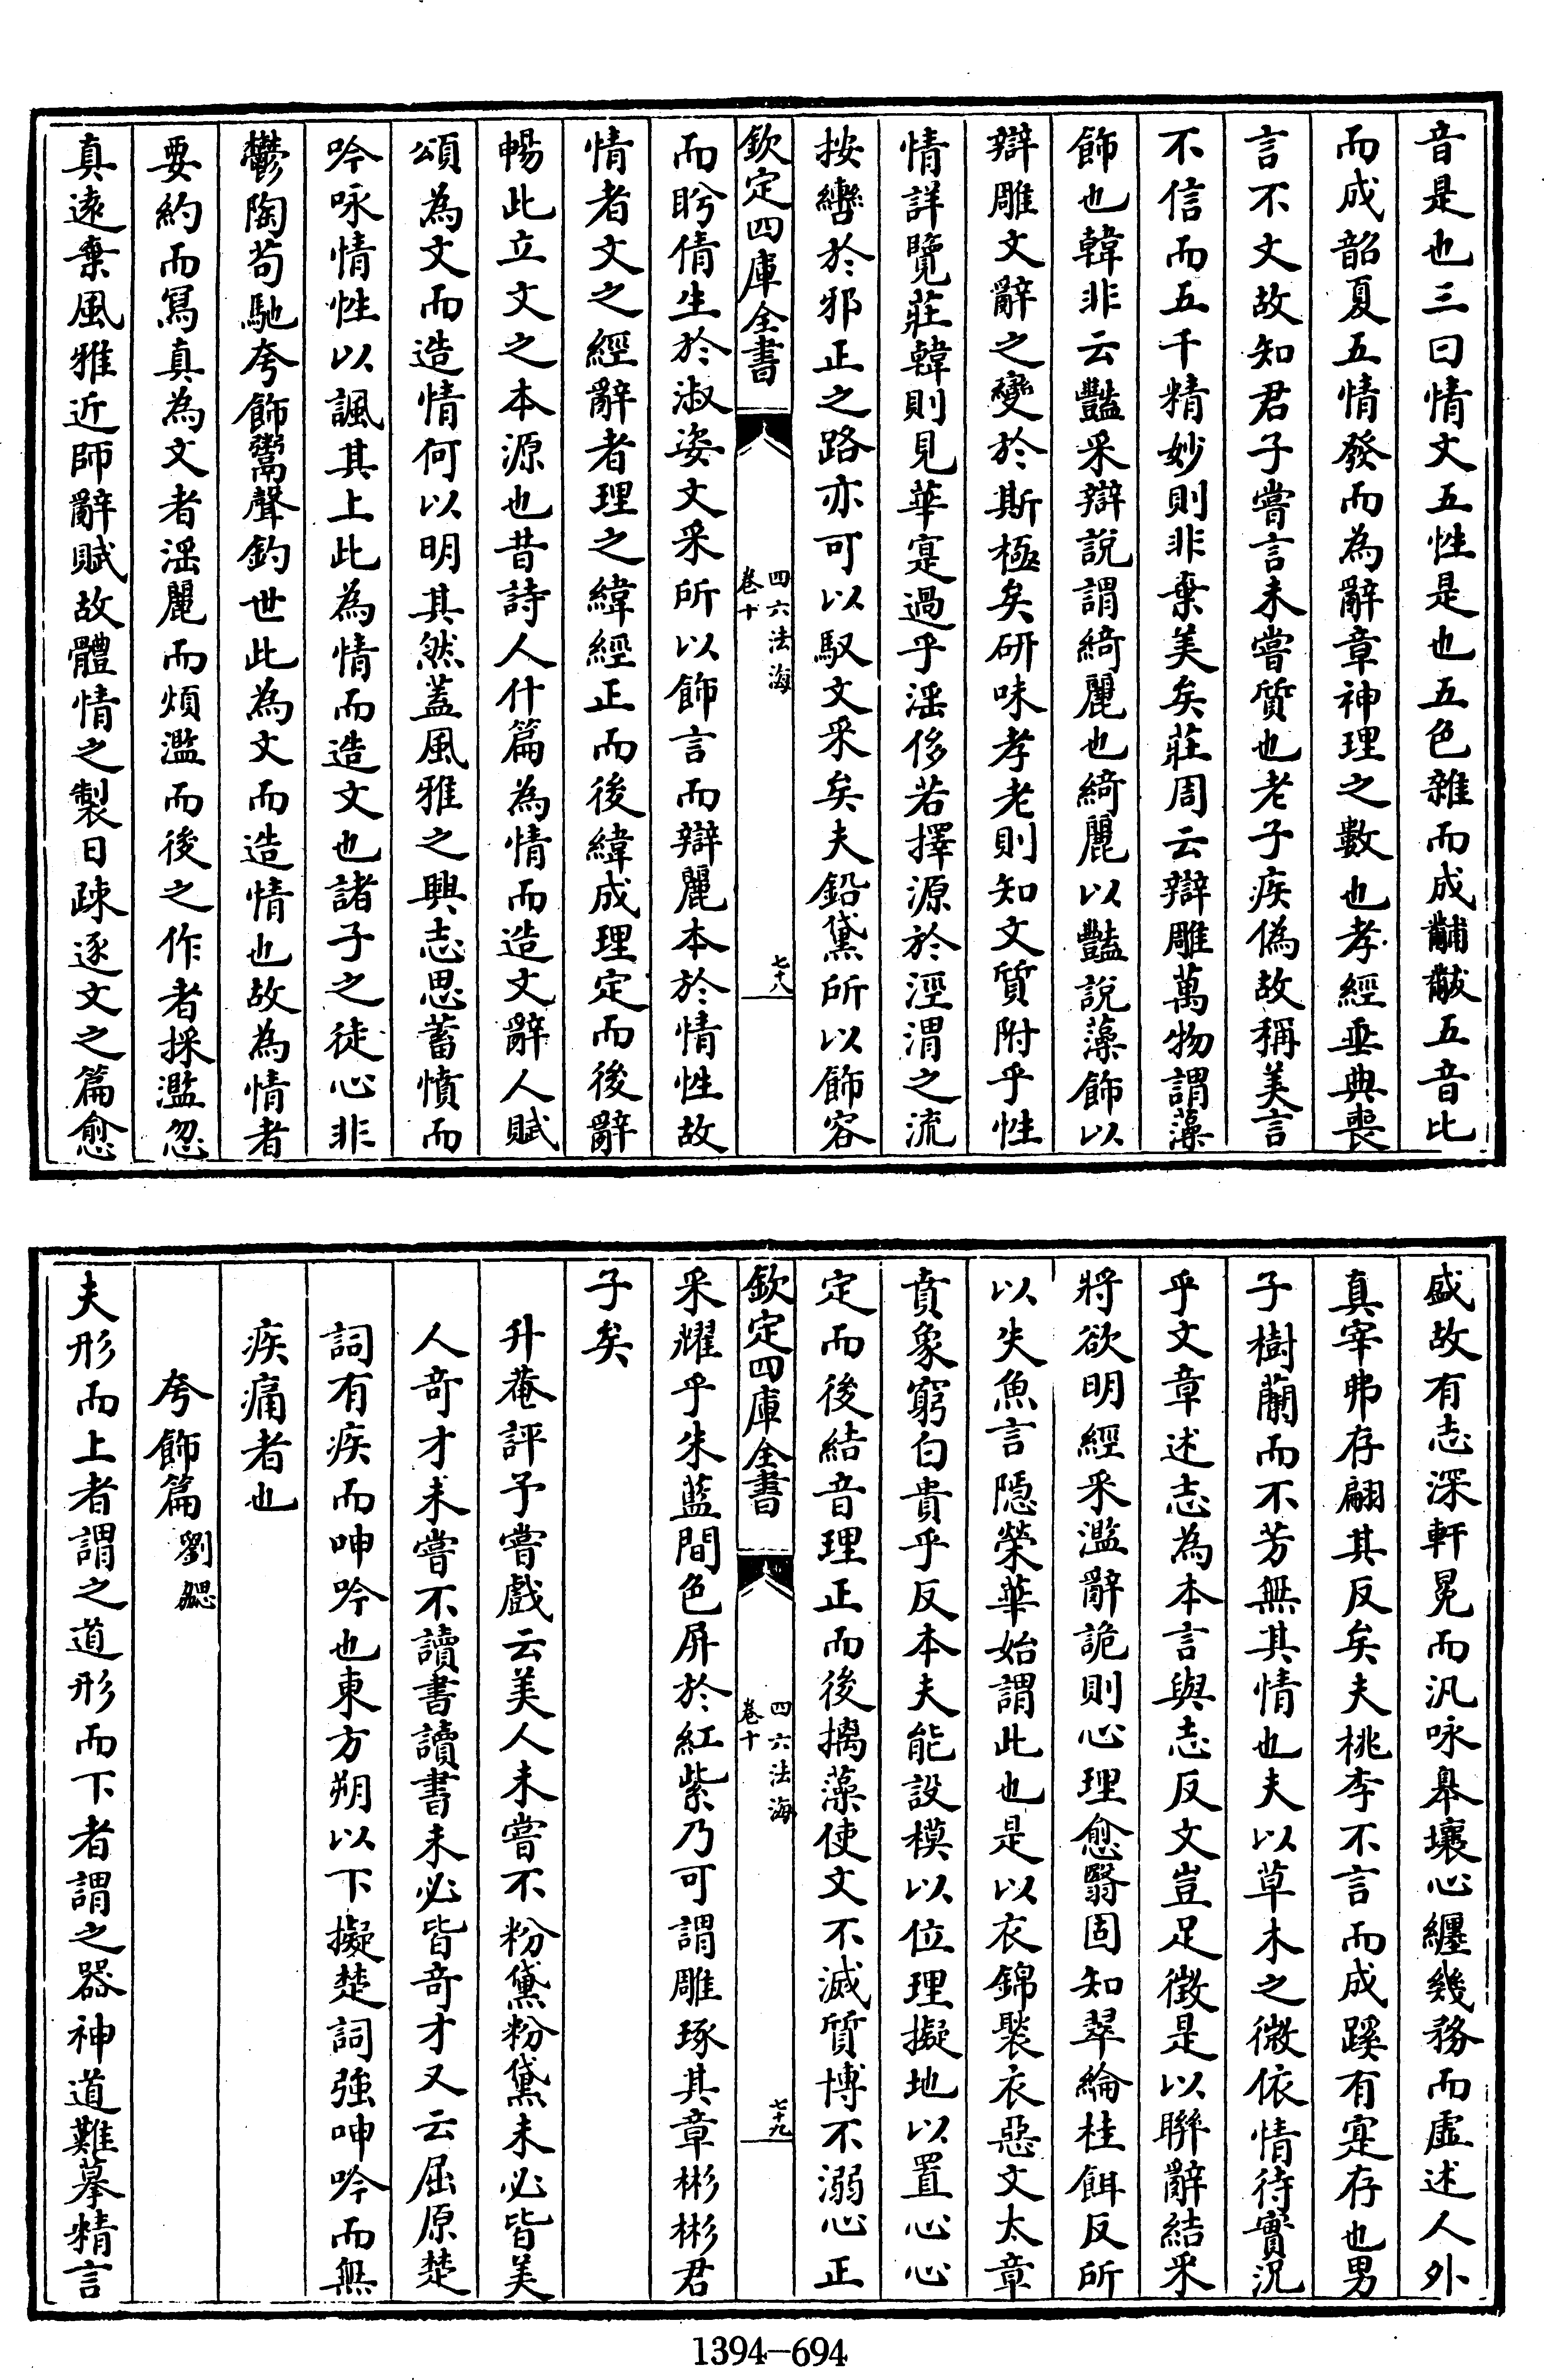 音是也三曰情文五性是也五色雜而成黼黻五音比
而成韶夏五情發而為辭章神理之數也孝經垂典喪
言不文故知君子嘗言未嘗質也老子疾偽故稱美言
不信而五千精妙則非棄美矣莊周云辯雕萬物謂藻
飾也韓非云豔采辯說謂綺麗也綺麗以豔說藻飾以
辯雕文辭之變於斯極矣研味孝老則知文質附乎性
情詳覽莊韓則見華寔過乎滛侈若擇源於涇渭之流
按轡於邪正之路亦可以馭文采矣夫鉛黛所以飾容
欽定四庫全書
四六法海
卷十
七十八
而盼倩生於淑姿文采所以飾言而辯麗本於情性故
情者文之經辭者理之緯經正而後緯成理定而後辭
暢此立文之本源也昔詩人什篇為情而造文辭人賦
頌為文而造情何以明其然蓋風雅之興志思蓄憤而
吟咏情性以諷其上此為情而造文也諸子之徒心非
鬱陶苟馳夸飾鬻聲釣世此為文而造情也故為情者
要約而冩真為文者滛麗而煩濫而後之作者採濫忽
真遠棄風雅近師辭賦故體情之製日疎逐文之篇愈
盛故有志深軒冕而汎咏皋壤心纏幾務而虛述人外
真宰弗存翩其反矣夫桃李不言而成蹊有寔存也男
子樹蘭而不芳無其情也夫以草木之微依情待實況
乎文章述志為本言與志反文豈足徵是以聨辭結采
將欲明經采濫辭詭則心理愈翳固知翠綸桂餌反所
以失魚言隱榮華始謂此也是以衣錦褧衣惡文太章
賁象窮白貴乎反本夫能設模以位理擬地以置心心
定而後結音理正而後摛藻使文不滅質博不溺心正
欽定四庫全書
四六法海
卷十
七十九
采耀乎朱藍間色屏於紅紫乃可謂雕琢其章彬彬君
子矣
升菴評予嘗戲云美人未嘗不粉黛粉黛未必皆美
人竒才未嘗不讀書讀書未必皆竒才又云屈原楚
詞有疾而呻吟也東方朔以下擬楚詞強呻吟而無
疾痛者也
夸飾篇 劉勰
夫形而上者謂之道形而下者謂之器神道難摹精言
1394-694